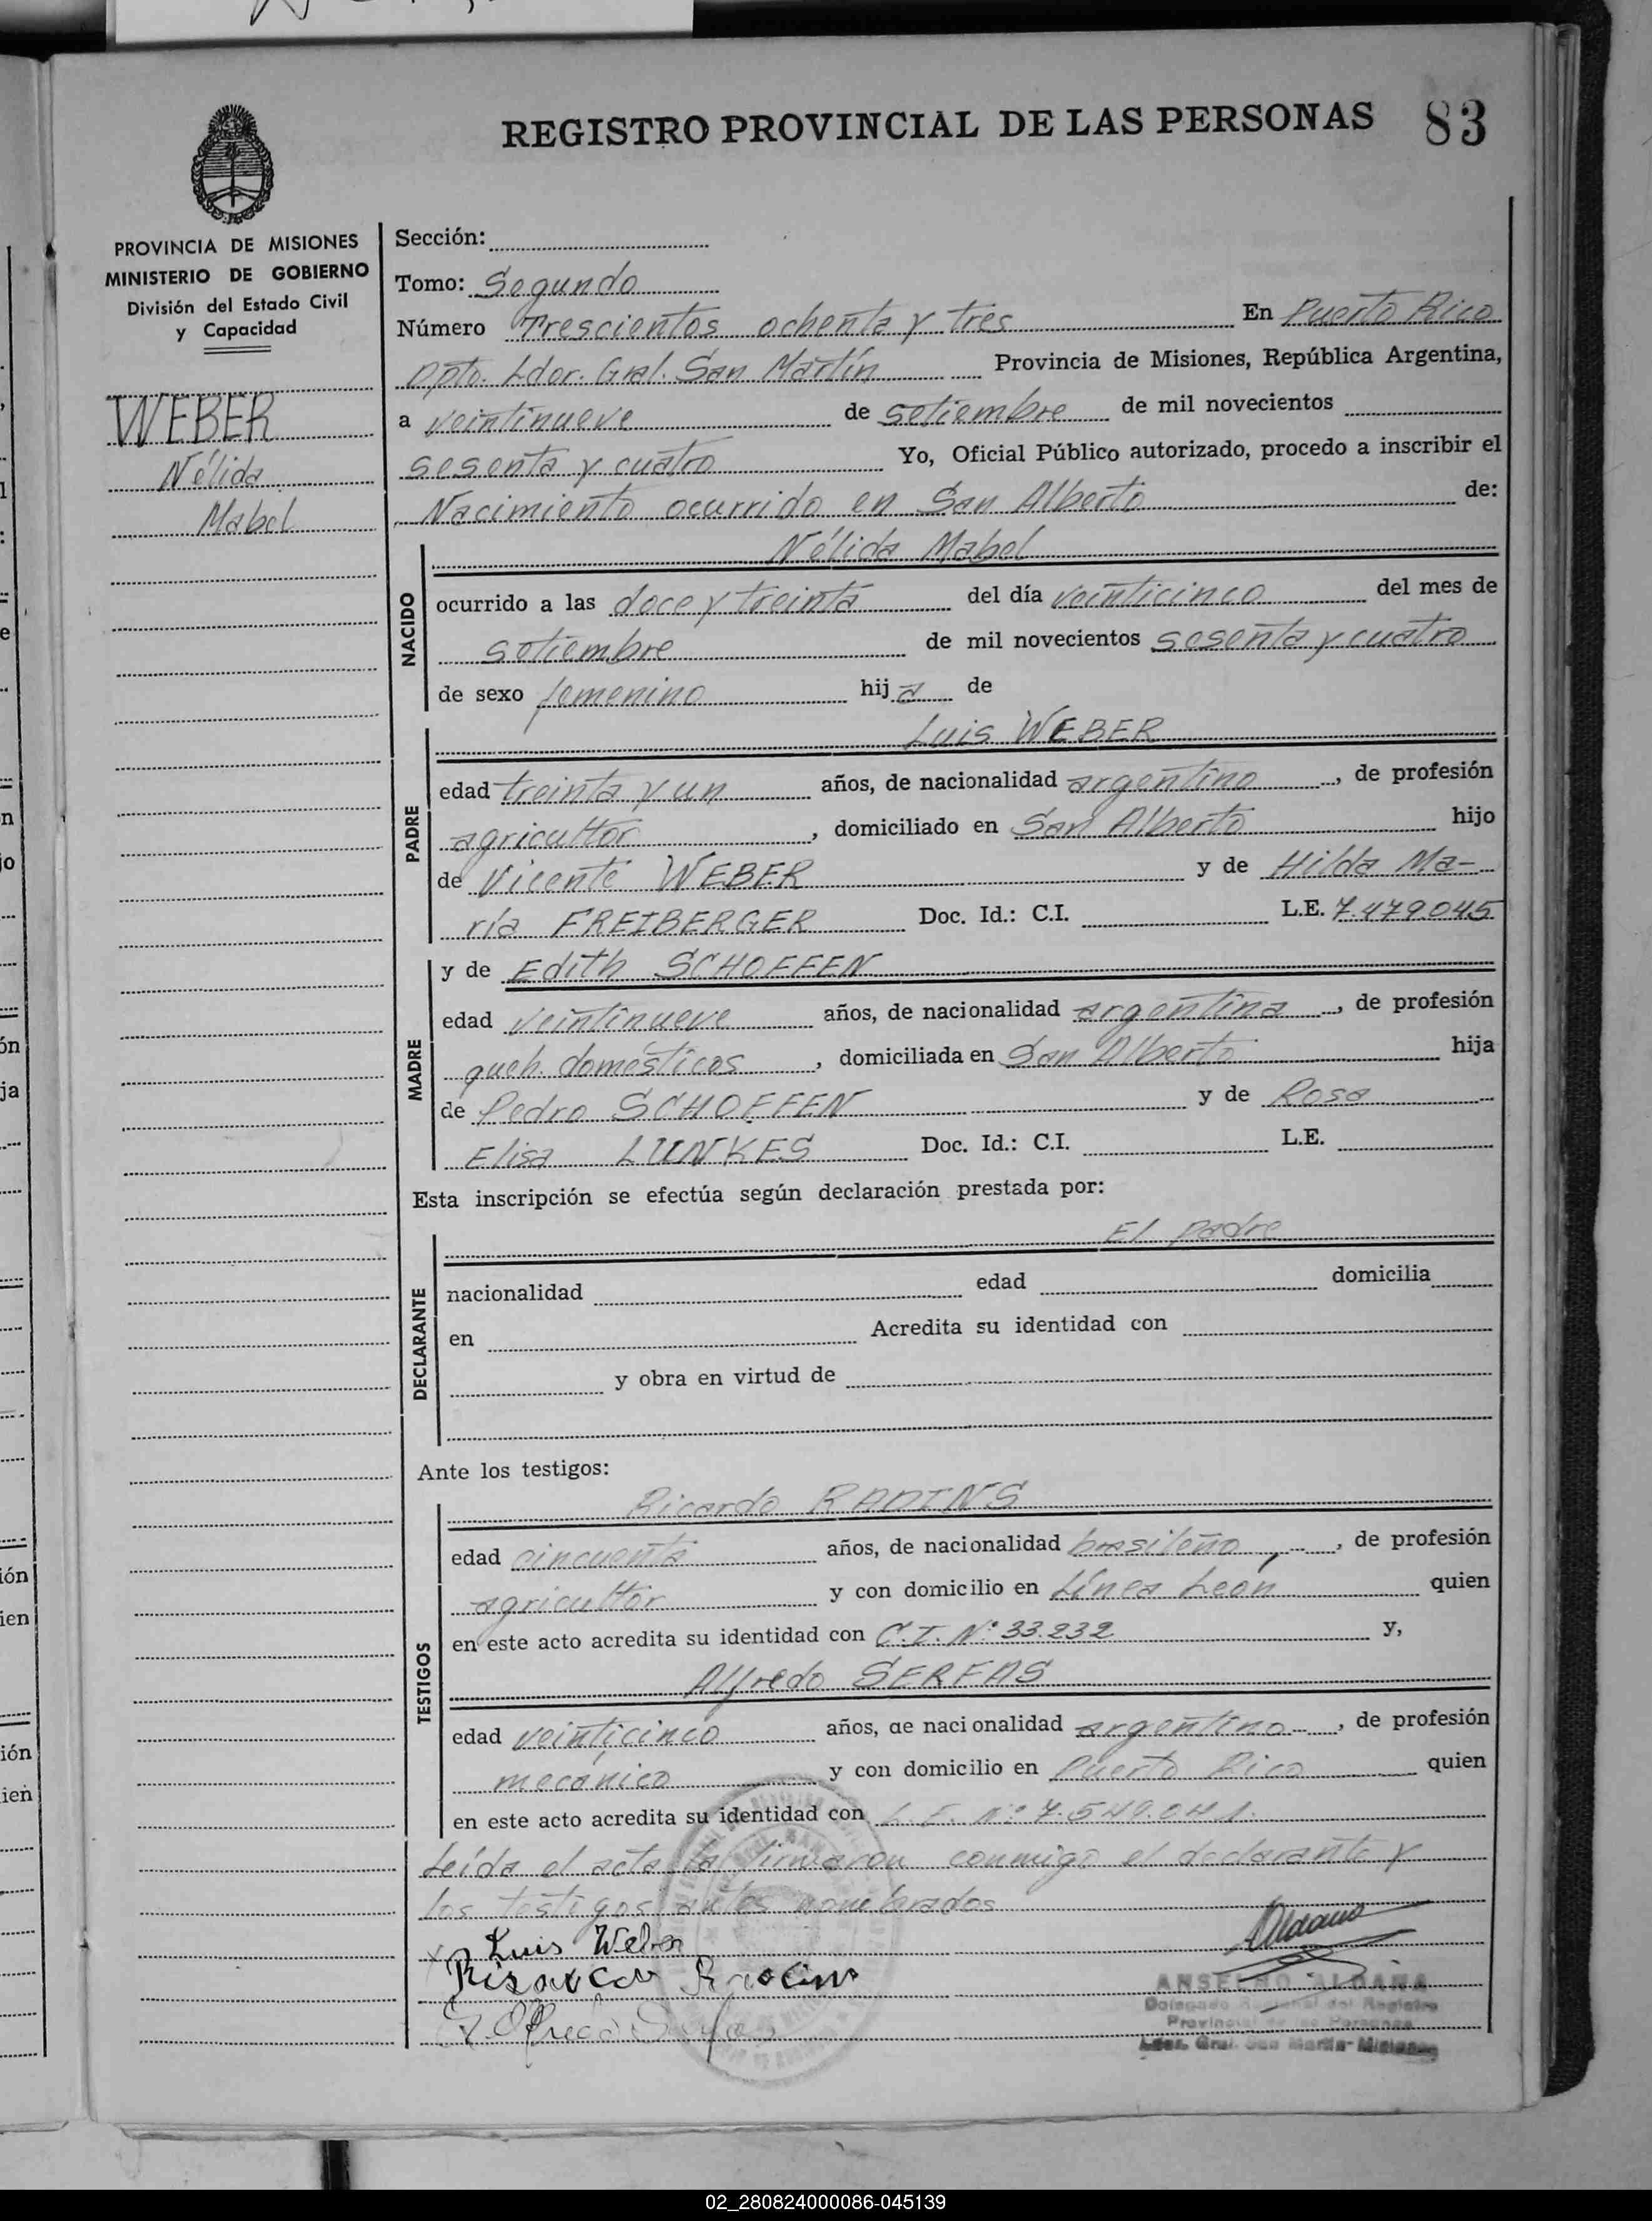 REGISTRO PROVINCIAL DE LAS PERSONAS 83
PROVINCIA DE MISIONES
MINISTERIO DE GOBIERNO
División del Estado Civil
y Capacidad
WEBER
Nélida
Mabel
Sección:
Tomo: Segundo
Número Trescientos ochenta y tres En Puerto Rico
Dpto. Ldor. Gral. San Martín Provincia de Misiones, República Argentina,
a veintinueve de setiembre de mil novecientos
sesenta y cuatro Yo, Oficial Público autorizado, procedo a inscribir el
Nacimiento ocurrido en San Alberto de:
Nélida Mabel
NACIDO
ocurrido a las doce y treinta del día veinticinco del mes de
setiembre de mil novecientos sesenta y cuatro
de sexo femenino hija de
Luis WEBER
PADRE
edad treinta y un años, de nacionalidad argentino, de profesión
agricultor, domiciliado en San Alberto hijo
de Vicente WEBER y de Hilda Ma-
ría FREIBERGER Doc. Id.: C.I. L.E. 7.479.045
y de Edith SCHOFFEN
MADRE
edad veintinueve años, de nacionalidad argentina, de profesión
queh. domésticos, domiciliada en San Alberto hija
de Pedro SCHOFFEN y de Rosa
Elisa LUNKES Doc. Id.: C.I. L.E.
Esta inscripción se efectúa según declaración prestada por:
El padre
DECLARANTE
nacionalidad edad domicilia
en Acredita su identidad con
y obra en virtud de
Ante los testigos:
Ricardo RADINS
TESTIGOS
edad cincuenta años, de nacionalidad brasileño, de profesión
agricultor y con domicilio en Línea León quien
en este acto acredita su identidad con C.I. Nº 33.232 y,
Alfredo SERFAS
edad veinticinco años, de nacionalidad argentino, de profesión
mecánico y con domicilio en Puerto Rico quien
en este acto acredita su identidad con L.E. Nº 7.549.041.
Leída el acta la firmaron conmigo el declarante y
los testigos antes nombrados
Luis Weber
Aldana
ANSELMO ALDANA
Delegado Regional del Registro
Provincial de las Personas
Ldor. Gral. San Martín-Misiones
02_280824000086-045139